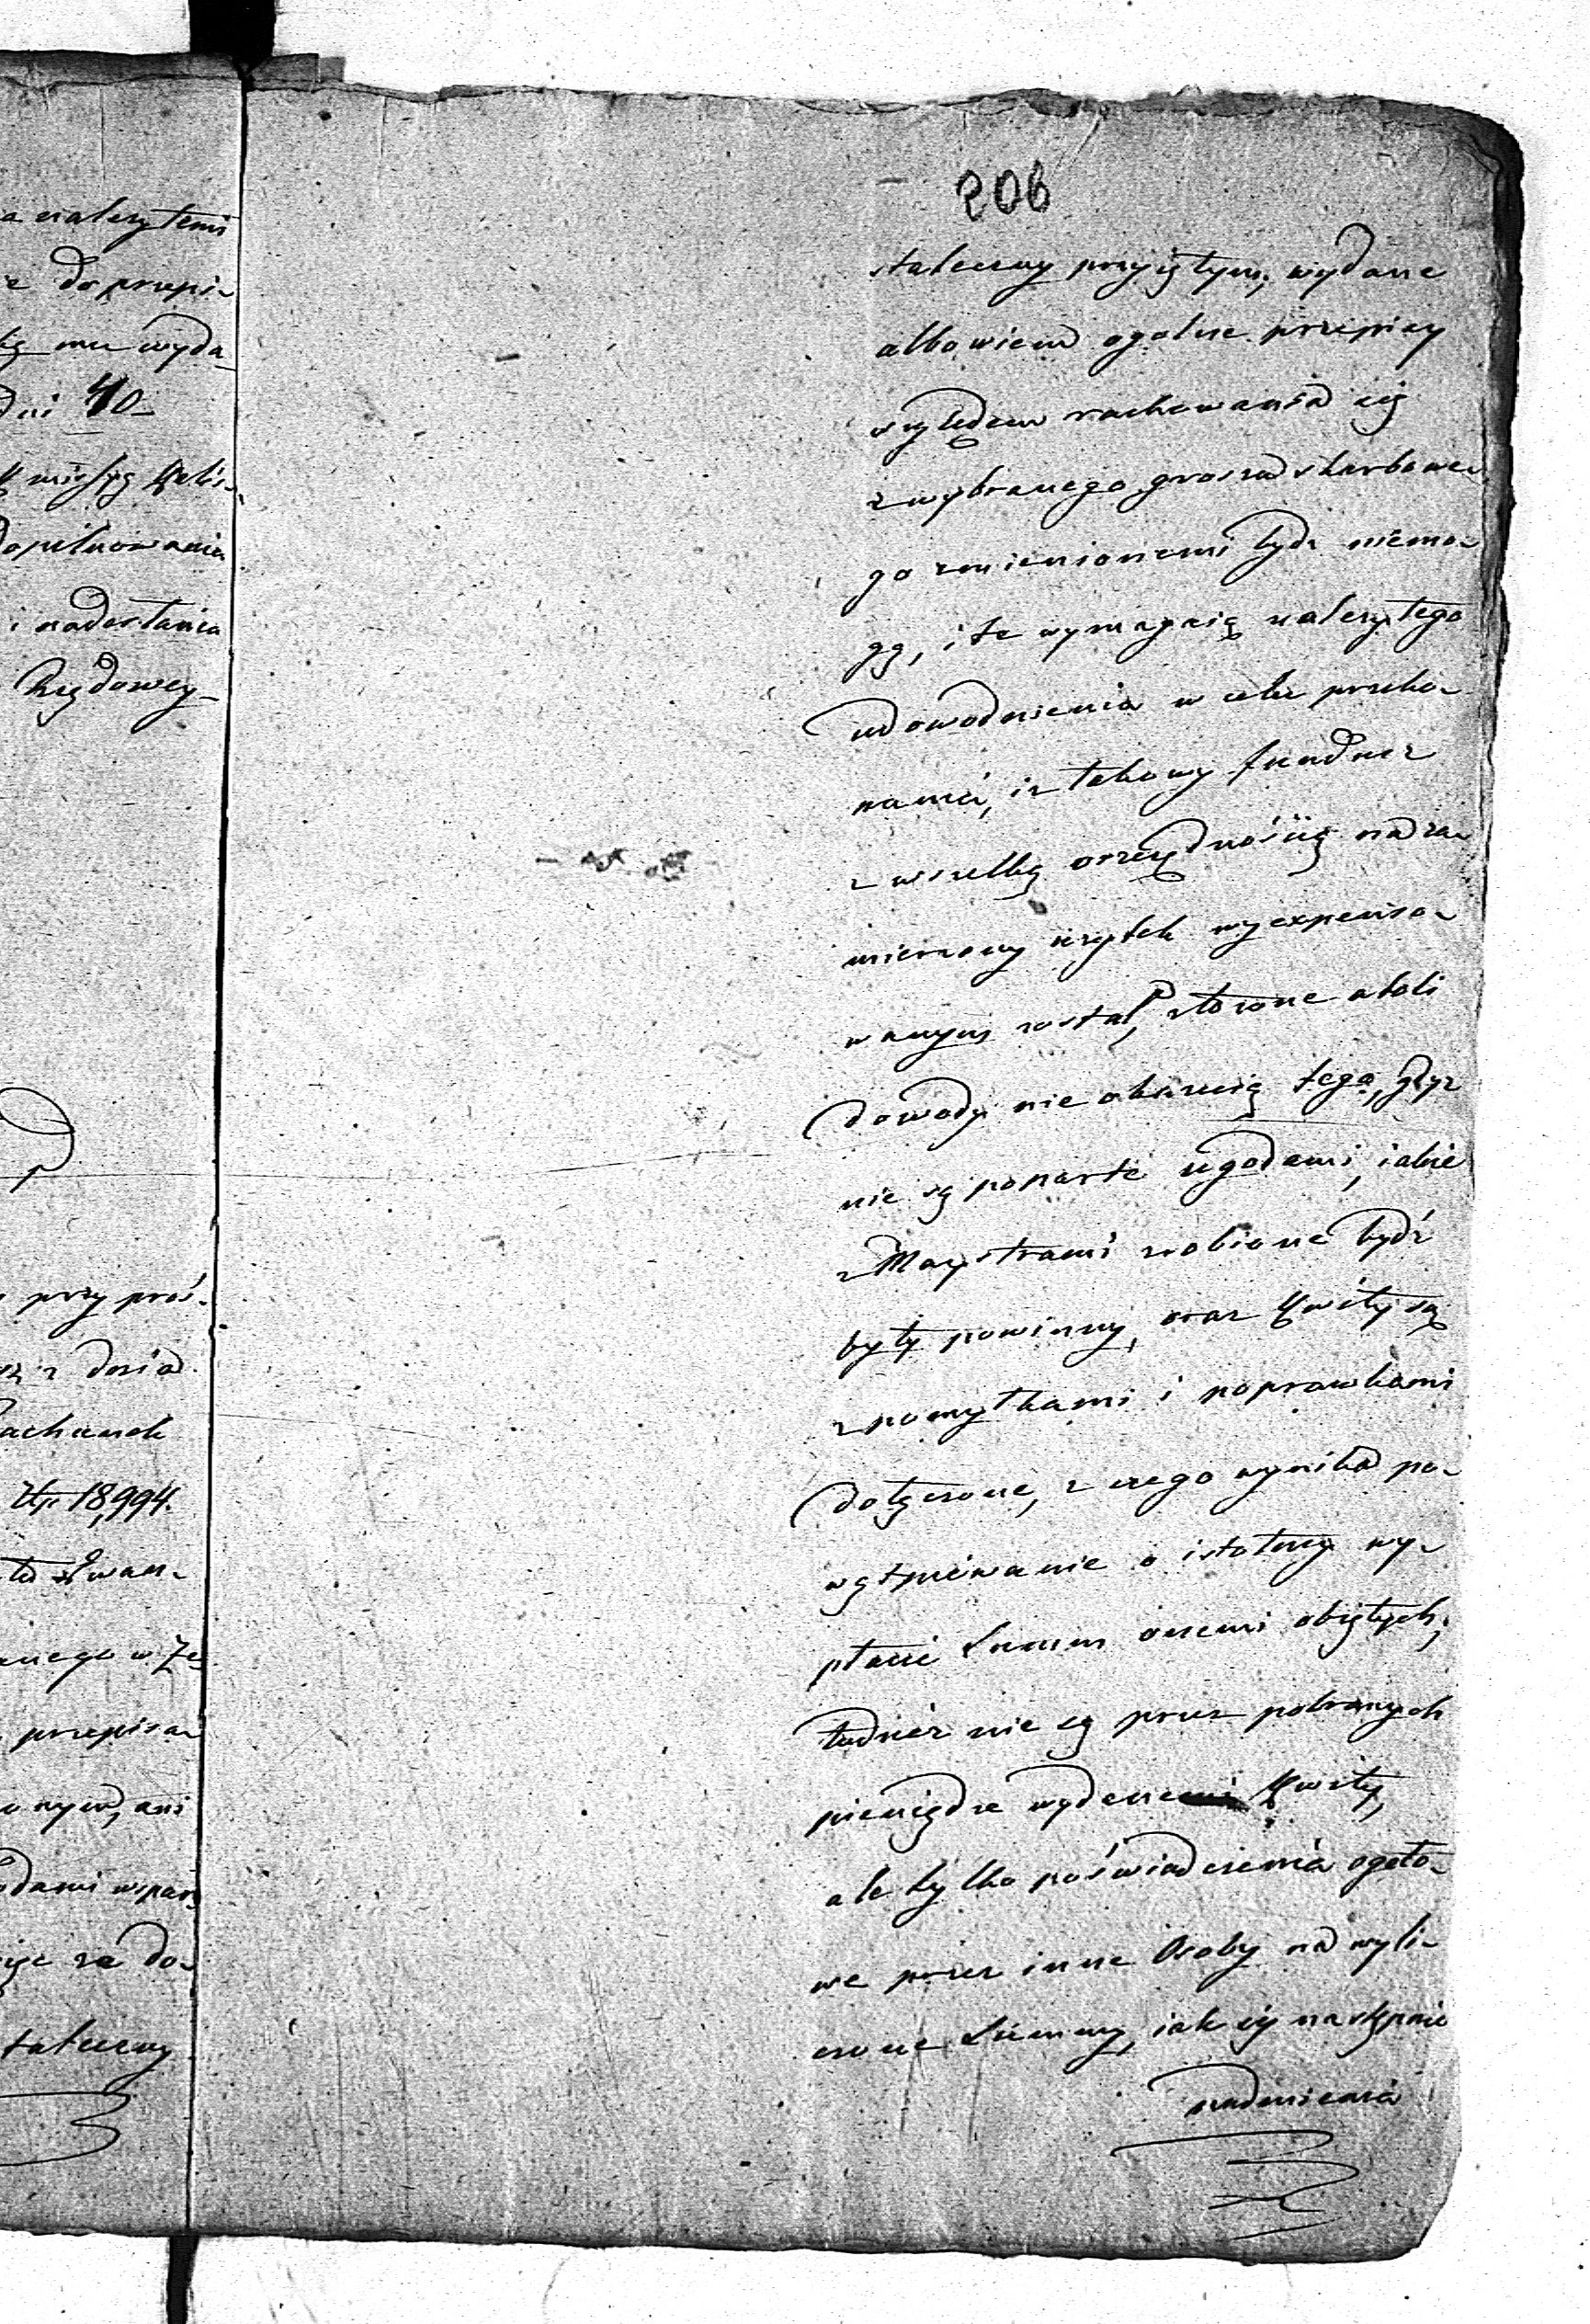 a należytemi
z do przepi-
mu wyda
dni 40
dopilnowania
i nadesłania
Rządowey
przy proś-
z dosia
Rachunek
Złp 18,994.
anego w Ze
przepisa-
ani
wspar
za do-
stateczny
206
stateczny przyiętym, wydane
albowiem ogolne przepisy
względem rachowania się
z wybranego grosza skarbowe-
go zmienionemi bydz niemo-
gą, i te wymagaią należytego
udowodnienia w celu przeko-
nania, iż takowy fundusz
z wszelką oszczędnością na za-
mierzony użytek wyexpenso-
wanym został, złożone a toli
dowody nie okazuią tego, gdyż
nie są poparte ugodami, iakie
z Maystrami zrobione bydź
były powinny, oraz Kwity są
z pomyłkami i poprawkami
dołączone, z czego wynika po-
wątpiewanie o istotney wy-
płacie Summ onemi obiętych;
tudzież nie są przez pobranych
pieniądze wydane Kwity,
ale tylko poświadczenia ogoło-
we przez inne Osoby na wyli-
czone Summy, iak się następnie
nadmienia